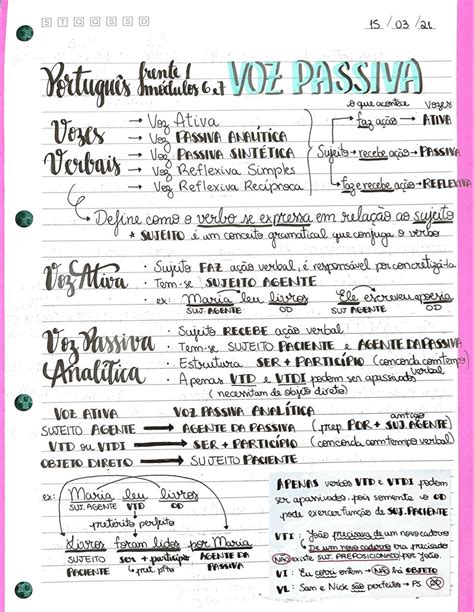 S T Q Q S S D
15 / 03 / 21
Português frente 1 módulos 6 e 7 VOZ PASSIVA
Vozes Verbais
→ Voz Ativa
→ Voz PASSIVA ANALÍTICA
→ Voz PASSIVA SINTÉTICA
→ Voz Reflexiva Simples
→ Voz Reflexiva Recíproca
o que acontece vozes
faz ação → ATIVA
Sujeito → recebe ação → PASSIVA
faz e recebe ação → REFLEXIVA
→ Define como o verbo se expressa em relação ao sujeito
* SUJEITO é um conceito gramatical que conjuga o verbo
Voz Ativa
· Sujeito FAZ ação verbal, é responsável por concretizá-la
· Tem-se SUJEITO AGENTE
· ex: Maria leu livros Ele escreveu poesia
SUJ. AGENTE OD SUJ AGENTE OD
Voz Passiva Analítica
· Sujeito RECEBE ação verbal
· Tem-se SUJEITO PACIENTE e AGENTE DA PASSIVA
· Estrutura SER + PARTICÍPIO (concorda com tempo verbal)
· Apenas VTD e VTDI podem ser apassivados
(necessitam de objeto direto)
VOZ ATIVA VOZ PASSIVA ANALÍTICA
antigo
SUJEITO AGENTE → AGENTE DA PASSIVA (prep. POR + SUJ. AGENTE)
VTD ou VTDI → SER + PARTICÍPIO (concorda com tempo verbal)
OBJETO DIRETO → SUJEITO PACIENTE
ex: Maria leu livros
SUJ. AGENTE VTD OD
pretérito perfeito
Livros foram lidos por Maria
SUJEITO PACIENTE ser + particípio AGENTE DA PASSIVA
→ pret. pfto
APENAS verbos VTD e VTDI podem
ser apassivados, pois somente o OD
pode exercer função de SUJ. PACIENTE
VTI: João precisava de um novo caderno
De um novo caderno era precisado por João.
NÃO existe SUJ. PREPOSICIONADO
VI: Eu corri ontem → NÃO há OBJETO
VL: Sam e Nick são perfeitos → PS